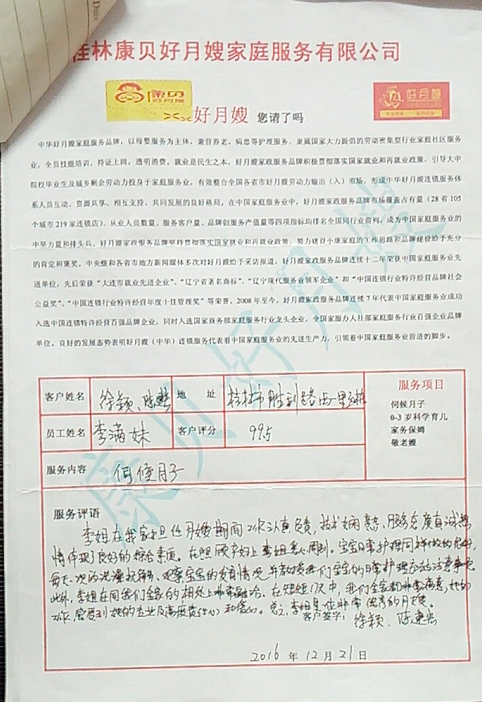 桂林康贝好月嫂家庭服务有限公司
康贝
好月嫂
好月嫂 您请了吗
中华好月嫂家庭服务品牌，以母婴服务为主体，兼营养老、病患等护理服务，隶属国家大力提倡的劳动密集型行业家庭社区服务业，
全员技能培训，持证上岗，透明消费，就业是民生之本，好月嫂家政服务品牌积极贯彻落实国家就业和再就业政策，引导大中
院校毕业生及城乡剩余劳动力投身于家庭服务业，有效整合全国各省市好月嫂劳动力输出（入）市场，形成中华好月嫂连锁服务体
系人员互动、资源共享、相互支持、共同发展的良好格局。在中国家庭服务业中，好月嫂家政服务品牌市场覆盖占有量（28省105
个城市219家连锁店）、从业人员数量、服务客户量、品牌创服务产值量等四项指标均排名全国同行业首列，成为中国家庭服务业的
中坚力量和排头兵。好月嫂家政服务品牌
的肯定和褒奖。中央级和各省市地方新闻媒体多次对好月嫂给予采访报道。好月嫂家政服务品牌连续十二年荣获中国家庭服务业先
进单位，先后荣获“大连市就业先进企业”、“辽宁省著名商标”、“辽宁现代服务业领军企业”和“中国连锁行业特许经营品牌社会
公益奖”、“中国连锁行业特许经年度十佳管理奖”等荣誉。2008年至今，好月嫂家政服务品牌连续7年代表中国家庭服务业成功
入选中国连锁特许经营百强品牌企业，同时入选国家商务部家庭服务行业龙头企业，全国家服办人社部家庭服务行业百强企业品牌
单位。良好的发展态势表明好月嫂（中华）连锁服务代表着中国家庭服务业的先进生产力，引领着中国家庭服务业前进的脚步。
客户姓名 徐颖、陈 地 址 桂林市胜利路
服务项目
伺候月子
0-3岁科学育儿
家务保姆
敬老嫂
员工姓名 李满妹 客户评分 99.5
服务内容 伺候月子
服务评语
李姐在我家担任月嫂期间工作认真负责，技术娴熟，服务态度真诚热
情体现了良好的综合素质。在照顾产妇上李姐悉心周到。宝宝日常护理
每天
此外，李姐在同我们全家的相处上非常融洽，在短短 天中，我们全家都非常满意，她的
总之，李姐是位非常优秀的月嫂。
客户签字：徐颖 陈
2016年12月21日
康贝好月嫂